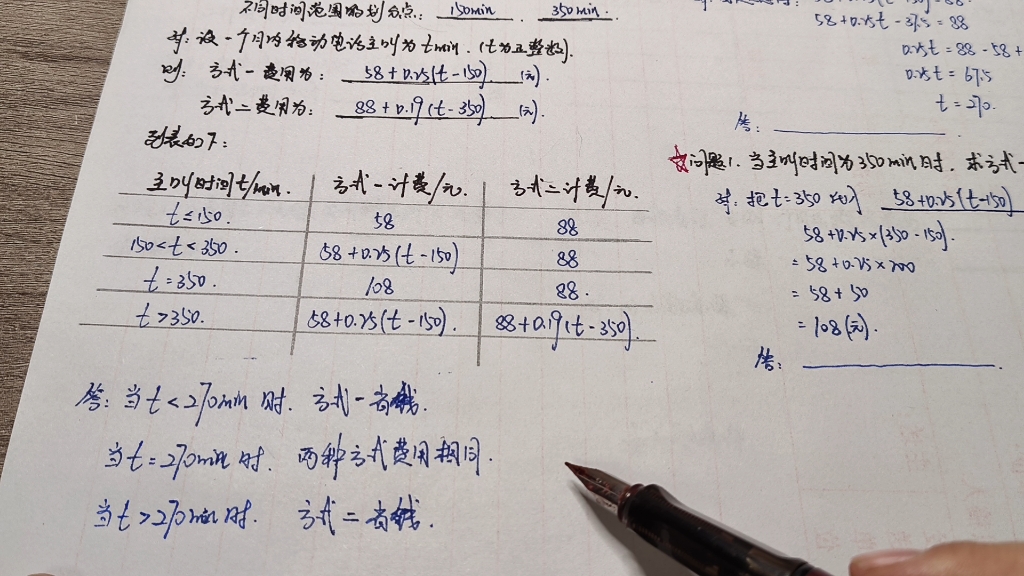 不同时间范围的划分点: 150min. 350min.
解: 设一个月内移动电话主叫为 t min. (t为正整数).
则: 方式一费用为: 58+0.25(t-150) (元).
方式二费用为: 88+0.19(t-350) (元).
列表如下:
主叫时间t/min. 方式一计费/元. 方式二计费/元.
t≤150. 58 88
150<t<350. 58+0.25(t-150) 88
t=350. 108 88.
t>350. 58+0.25(t-150). 88+0.19(t-350).
答: 当t<270min时. 方式一省钱.
当t=270min时. 两种方式费用相同.
当t>270min时. 方式二省钱.
58+0.25t-37.5=88
0.25t=88-58+
0.25t=67.5
t=270.
答:
☆问题1. 当主叫时间为350min时. 求方式一
解: 把t=350代入 58+0.25(t-150)
58+0.25×(350-150).
=58+0.25×200
=58+50
=108(元).
答: